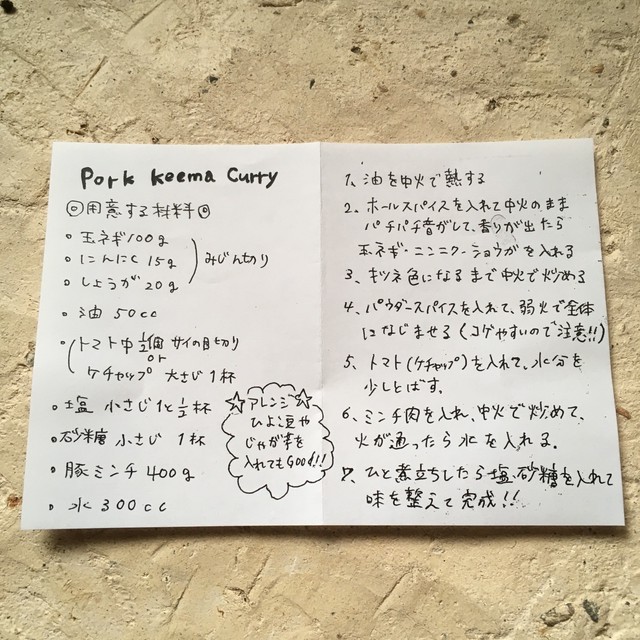 Pork Keema Curry
◎用意する材料◎
・玉ネギ100g
・にんにく 15g
・しょうが 20g
みじん切り
・油 50cc
・トマト中1/2個 サイの目切り
or
ケチャップ 大さじ1杯
・塩 小さじ1と1/2杯
・砂糖 小さじ 1杯
・豚ミンチ 400g
・水 300cc
☆アレンジ☆
ひよこ豆や
じゃが芋を
入れてもGOOd!!
1、油を中火で熱する
2、ホールスパイスを入れて中火のまま
パチパチ音がして、香りが出たら
玉ネギ・ニンニク・ショウガを入れる
3、キツネ色になるまで中火で炒める
4、パウダースパイスを入れて、弱火で全体
になじませる(コゲやすいので注意!!)
5、トマト(ケチャップ)を入れて、水分を
少しとばす。
6、ミンチ肉を入れ、中火で炒めて、
火が通ったら水を入れる。
7、ひと煮立ちしたら塩、砂糖を入れて
味を整えて完成!!